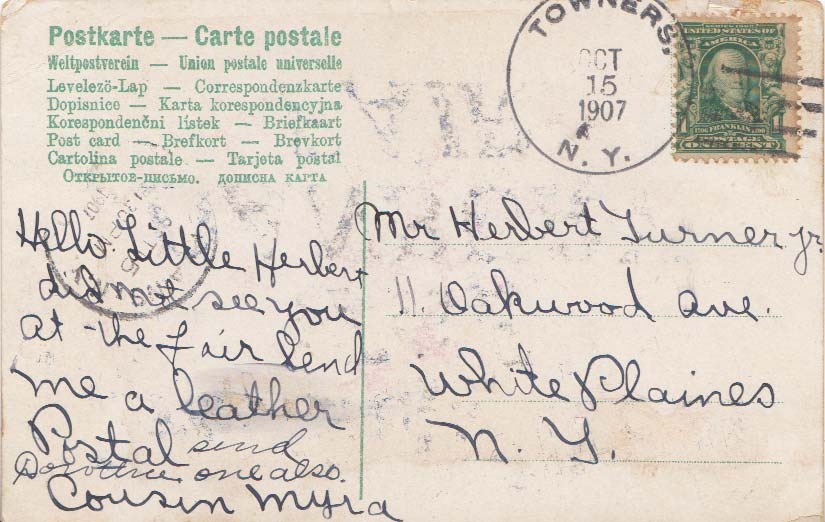 Postkarte — Carte postale
Weltpostverein — Union postale universelle
Levelező-Lap — Correspondenzkarte
Dopisnice — Karta korespondencyjna
Korespondenční lístek — Briefkaart
Post card — Brefkort — Brevkort
Cartolina postale — Tarjeta postal
Открытое-письмо. дописна карта
TOWNERS,
OCT
15
1907
N. Y.
SERIES 1902
UNITED STATES OF
AMERICA
1706 FRANKLIN 1790
POSTAGE
ONE CENT
Hello Little Herbert
did not see you
at the fair Send
me a leather
Postal send
Dorothie one also.
Cousin Myra
Mr Herbert Turner jr.
11 Oakwood Ave.
White Plaines
N. Y.